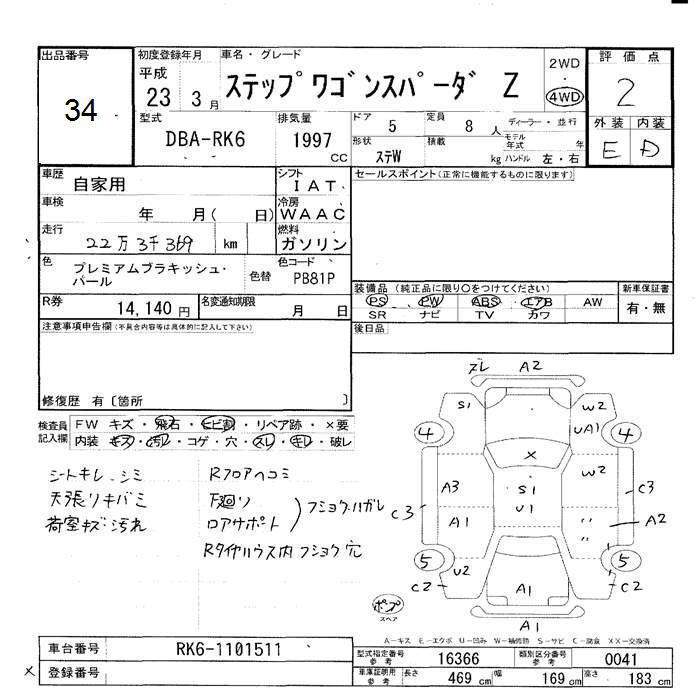 出品番号
34
初度登録年月
平成
23 3 月
車名・グレード
ステップワゴンスパーダ Z
2WD
・
4WD
評価点
2
型式
DBA-RK6
排気量
1997
CC
ドア
5
定員
8 人
ディーラー・並行
モデル
年式
年
外装 内装
E D
形状
ステW
積載
kg
ハンドル 左・右
車歴
自家用
シフト
IAT
セールスポイント(正常に機能するものに限ります)
車検
年 月( 日)
冷房
WAAC
走行
22万3千369 km
燃料
ガソリン
色
プレミアムブラキッシュ・
パール
色替
色コード
PB81P
装備品(純正品に限り○をつけてください)
PS PW ABS エアB AW
SR ナビ TV カワ
新車保証書
有・無
R券
14,140 円
名変通知期限
月 日
後日品
注意事項申告欄(不具合内容等は具体的に記入して下さい)
修復歴 有〔箇所 〕
検査員
記入欄
FW キズ・飛石・ヒビ割・リペア跡・×要
内装 キズ・汚れ・コゲ・穴・スレ・キレ・破レ
シートキレ、シミ
天張リキバミ
荷室キズ・汚れ
Rフロアヘコミ
下廻り
ロアサポート
フショク・ハガレ
Rタイヤハウス内フショク穴
ズレ A2
S1
W2
4
UA1
4
X
A3
S1
U1
W2
C3
C3
A1
〃
〃
A2
5
5
C2
U2
C2
A1
ポンプ
スペア
A1
A-キズ E-エクボ U-凹み W-補修跡 S-サビ C-腐食 XX-交換済
車台番号
RK6-1101511
型式指定番号
参考
16366
類別区分番号
参考
0041
× 登録番号
車庫証明用
参考
長さ
469 cm
幅
169 cm
高さ
183 cm